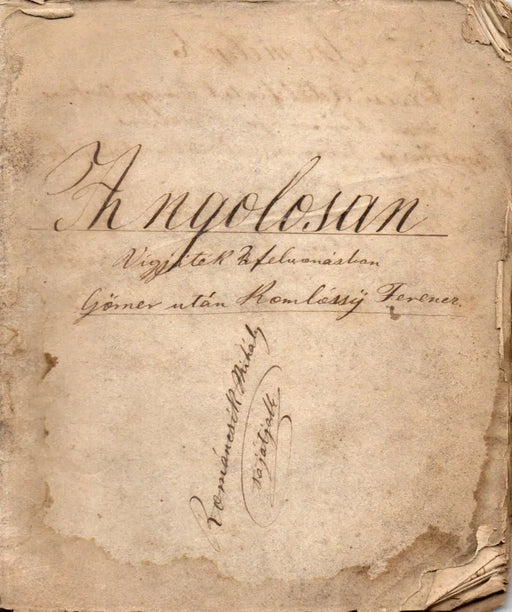 Angolosan
Vigjáték 2 felvonásban
Görner után Komlóssÿ Ferencz.
Románcsík Mihály
sajátjak